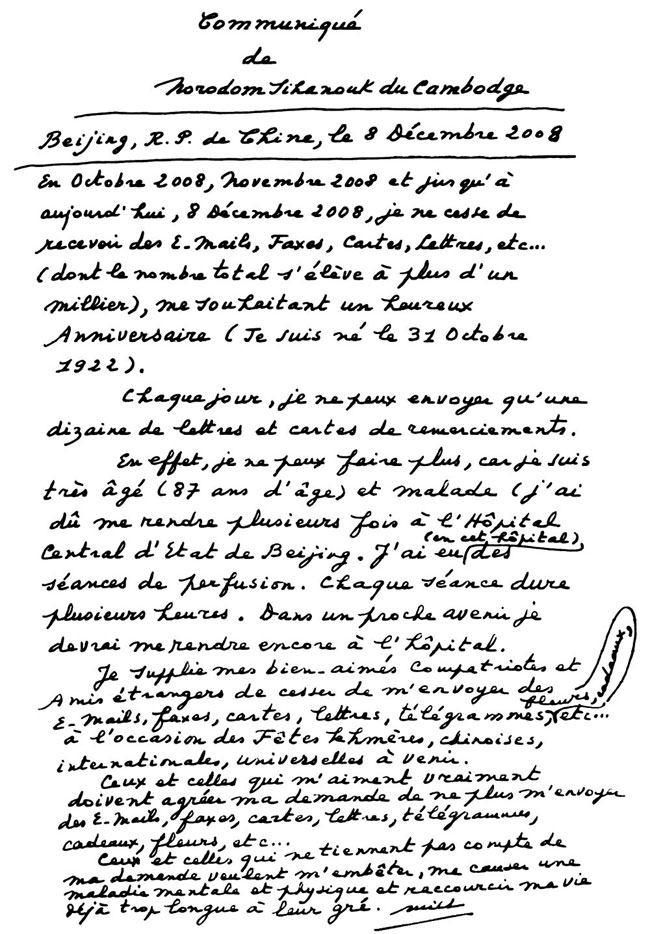 Communiqué
de
Norodom Sihanouk du Cambodge
Beijing, R. P. de Chine, le 8 Décembre 2008
En Octobre 2008, Novembre 2008 et jusqu'à
aujourd'hui, 8 Décembre 2008, je ne cesse de
recevoir des E-Mails, Faxes, Cartes, Lettres, etc...
(dont le nombre total s'élève à plus d'un
millier), me souhaitant un heureux
Anniversaire (Je suis né le 31 Octobre
1922).
Chaque jour, je ne peux envoyer qu'une
dizaine de lettres et cartes de remerciements.
En effet, je ne peux faire plus, car je suis
très âgé (87 ans d'âge) et malade (j'ai
dû me rendre plusieurs fois à l'Hôpital
Central d'Etat de Beijing. J'ai eu (en cet hôpital), des
séances de perfusion. Chaque séance dure
plusieurs heures. Dans un proche avenir je
devrai me rendre encore à l'hôpital.
Je supplie mes bien-aimés Compatriotes et
Amis étrangers de cesser de m'envoyer des
E-Mails, faxes, cartes, lettres, télégrammes, fleurs, cadeaux, etc...
à l'occasion des Fêtes khmères, chinoises,
internationales, universelles à venir.
Ceux et celles qui m'aiment vraiment
doivent agréer ma demande de ne plus m'envoyer
des E-Mails, faxes, cartes, lettres, télégrammes,
cadeaux, fleurs, etc...
Ceux et celles qui ne tiennent pas compte de
ma demande veulent m'embêter, me causer une
maladie mentale et physique et raccourcir ma vie
déjà trop longue à leur gré.